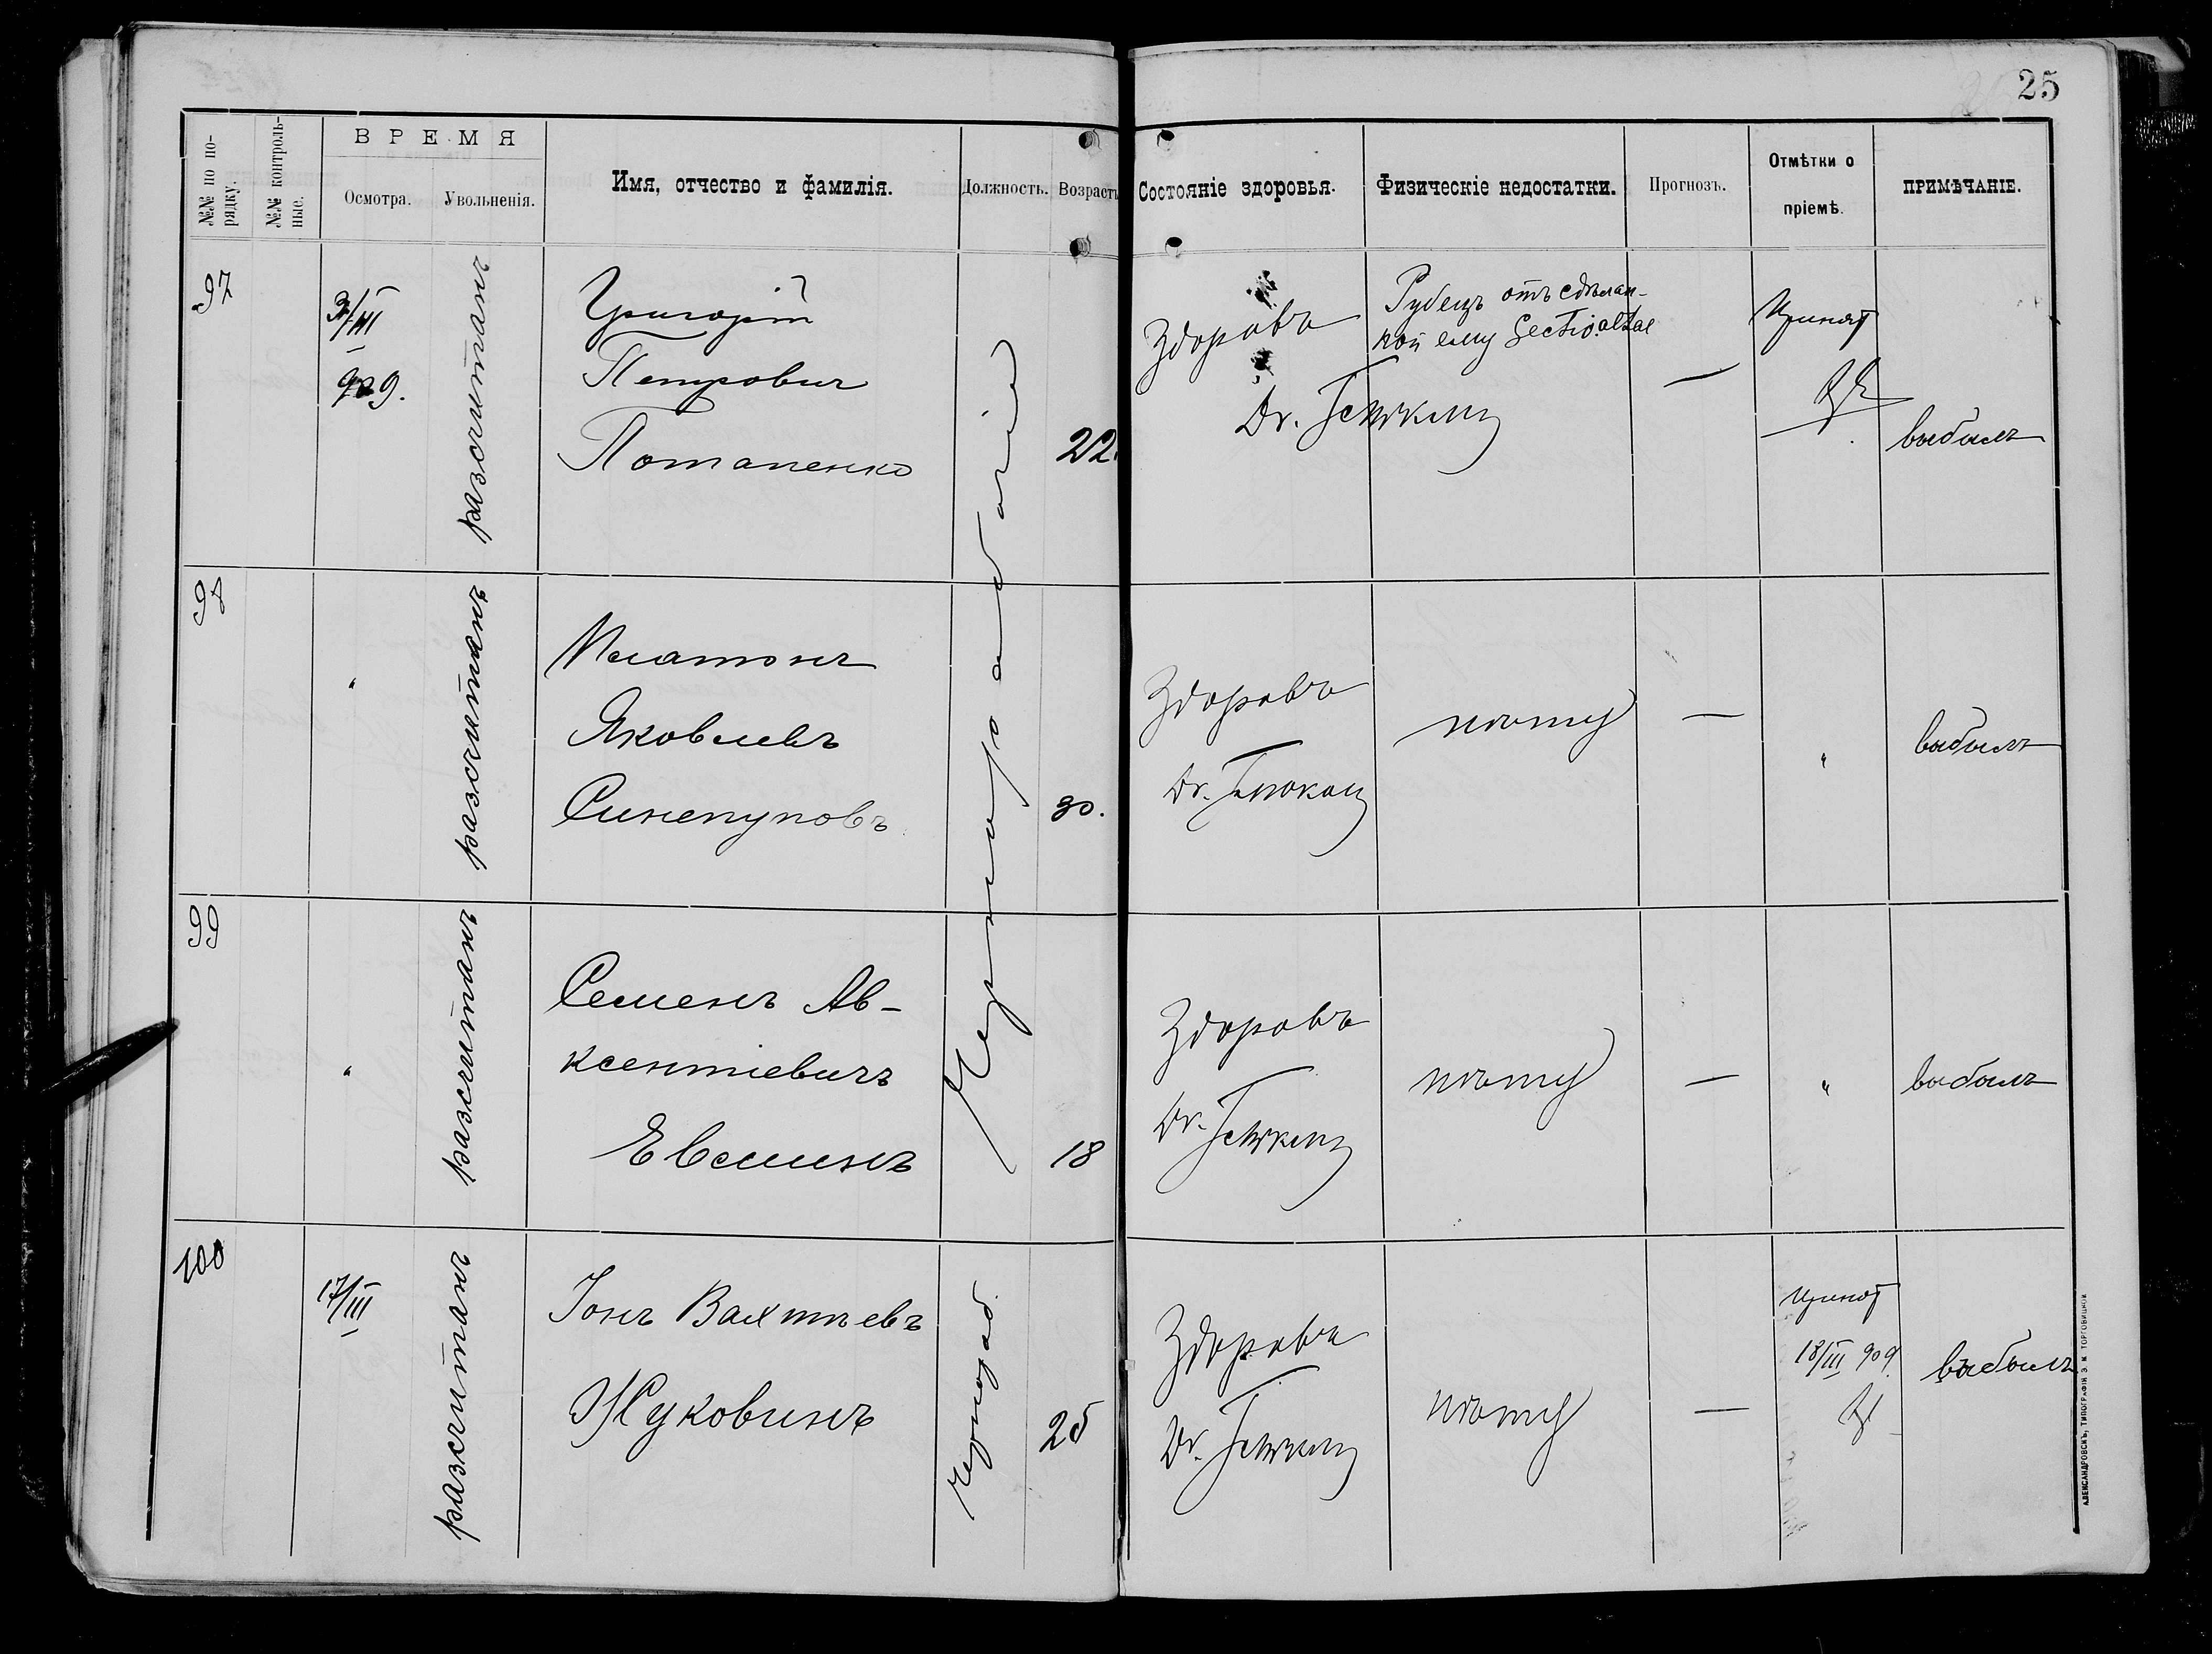 25
№№ по по-
рядку.
№№ контроль-
ные.
ВРЕМЯ
Осмотра.
Увольненія.
Имя, отчество и фамилія.
Должность.
Возрастъ
Состояніе здоровья.
Физическіе недостатки.
Прогнозъ.
Отмѣтки о
пріемѣ.
ПРИМѢЧАНІЕ.
97
/III
909.
разсчитанъ
Григорій
Петровичъ
Потапенко
Чернорабочіе
22.
Здоровъ
Dr.
Рубецъ отъ сдѣлан-
ной ему Sectio altae
—
Принят
выбылъ
98
"
разсчитанъ
Платонъ
Яковлевъ
Синепуповъ
30.
Здоровъ
Dr.
нѣту
—
"
выбылъ
99
"
разсчитанъ
Семенъ Ав-
ксентіевичъ
Евсминъ
18
Здоровъ
Dr.
нѣту
—
"
выбылъ
100
17/III
разсчитанъ
Іонъ
Жуковинъ
чернораб.
25
Здоровъ
Dr.
нѣту
—
принят
18/III 909
выбылъ
АЛЕКСАНДРОВСКЪ, ТИПОГРАФІЯ Э. М. ТОРГОВИЦКОЙ